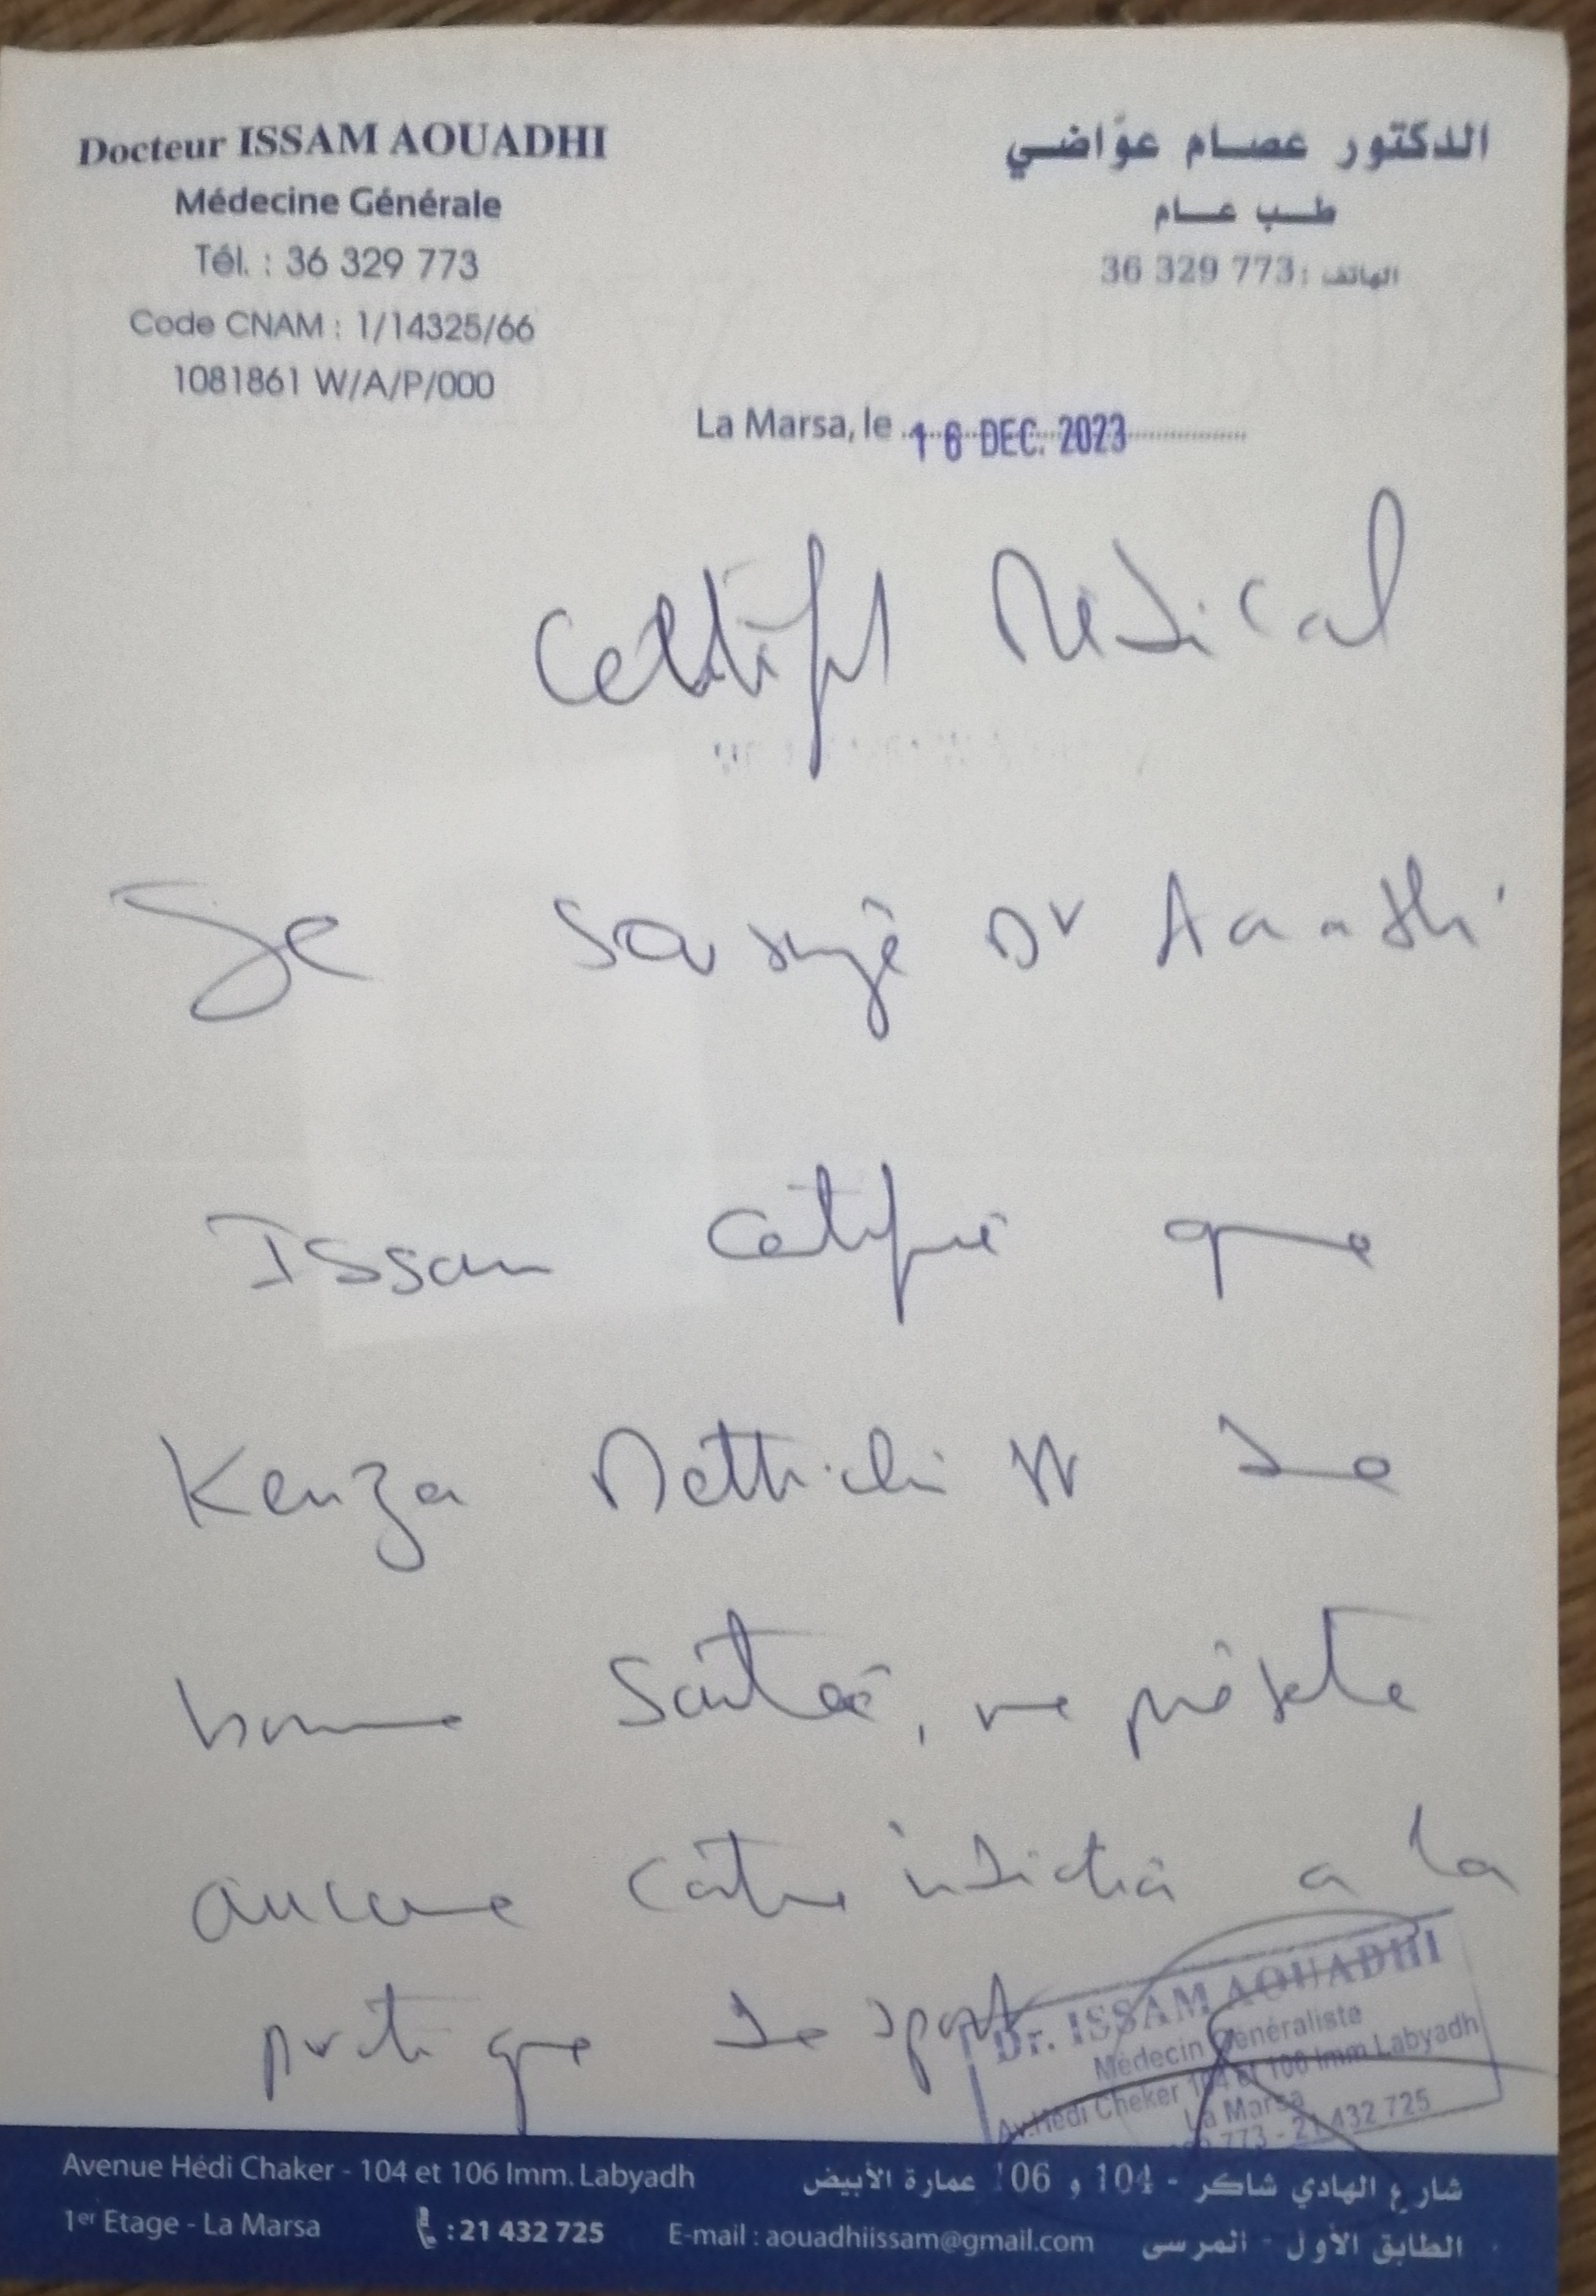 Docteur ISSAM AOUADHI
Médecine Générale
Tél. : 36 329 773
Code CNAM : 1/14325/66
1081861 W/A/P/000
الدكتور عصام عوّاضي
طب عام
الهاتف : 36 329 773
La Marsa, le 16 DEC. 2023
Certificat Médical
Je soussigné Dr Aouadhi
Issam certifie que
Kenza de
bonne Santé, ne présente
aucune contre indication a la
pratique de sport
Dr. ISSAM AOUADHI
Médecin Généraliste
Av. Hédi Cheker 104 et 106 Imm Labyadh
La Marsa
773 - 21 432 725
Avenue Hédi Chaker - 104 et 106 Imm. Labyadh
1er Etage - La Marsa : 21 432 725 E-mail : aouadhiissam@gmail.com
شارع الهادي شاكر - 104 و 106 عمارة الأبيض
الطابق الأول - المرسى